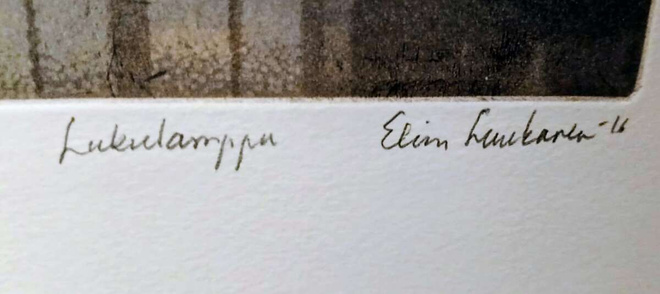 Lukulamppu Elina Luukanen -11